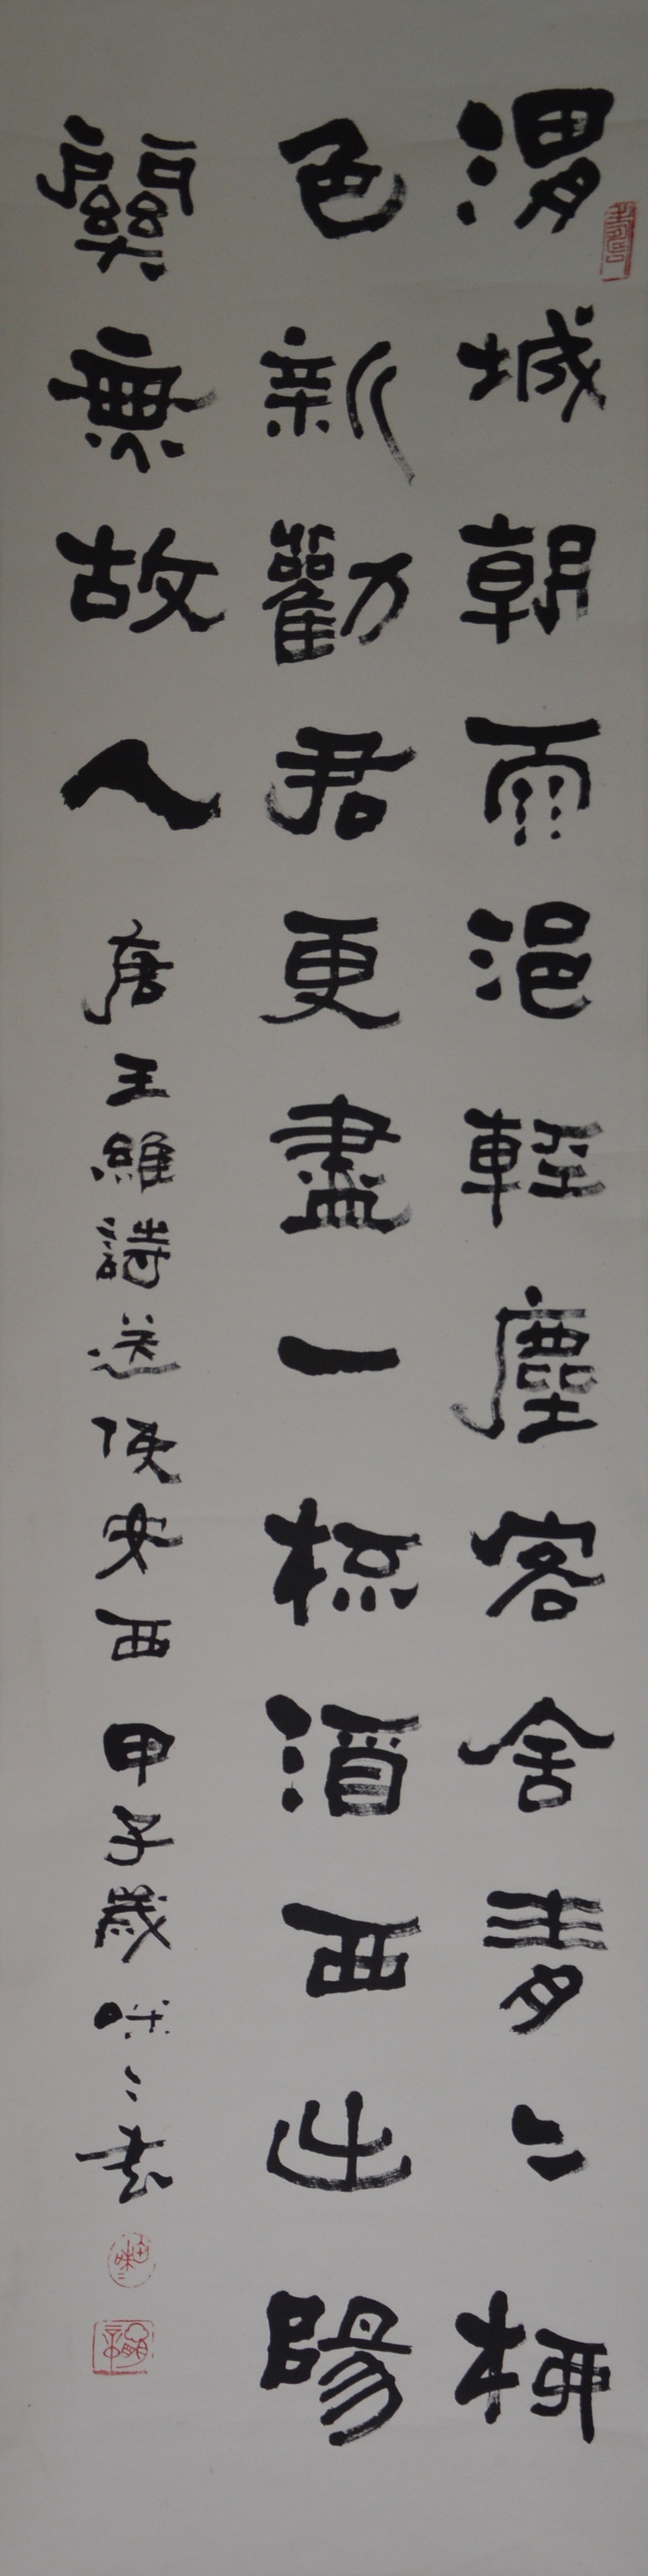 渭城朝雨浥輕塵客舍青〻柳
色新勸君更盡一桮酒西出陽
關無故人 唐王維詩送使安西 甲子歲 味〻書